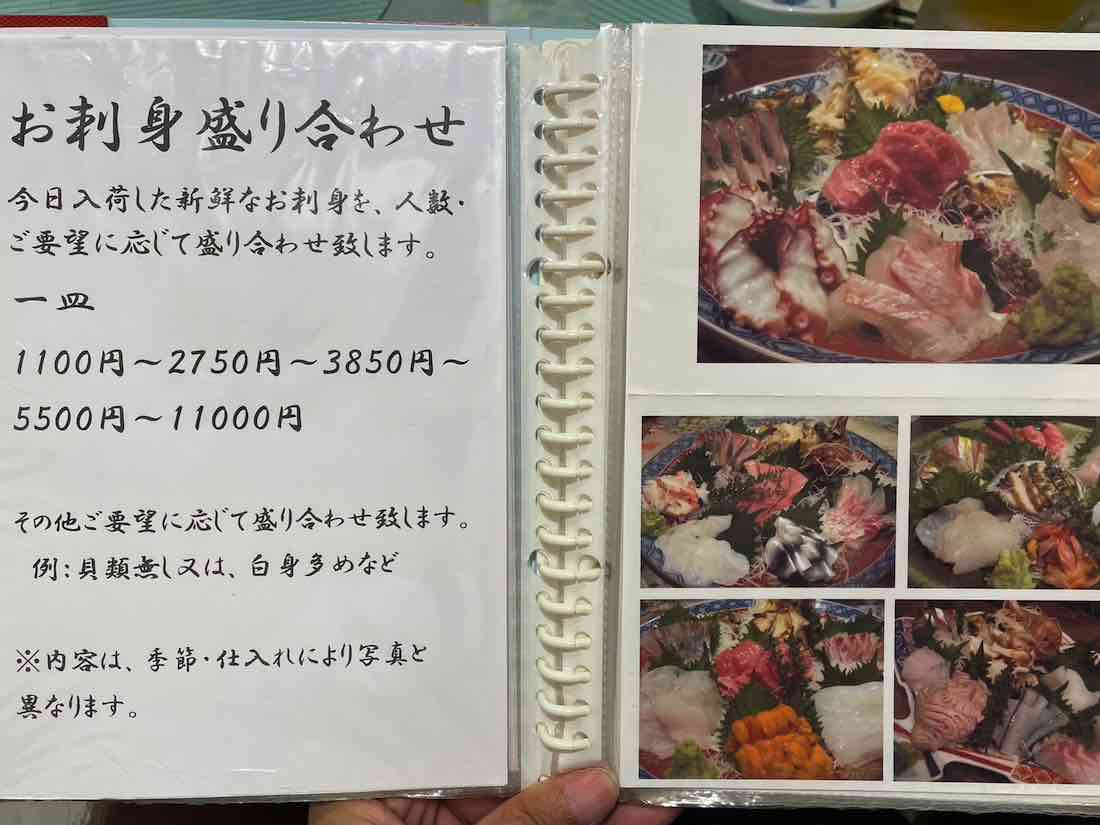 お刺身盛り合わせ
今日入荷した新鮮なお刺身を、人数・
ご要望に応じて盛り合わせ致します。
一皿
1100円～2750円～3850円～
5500円～11000円
その他ご要望に応じて盛り合わせ致します。
例:貝類無し又は、白身多めなど
※内容は、季節・仕入れにより写真と
異なります。